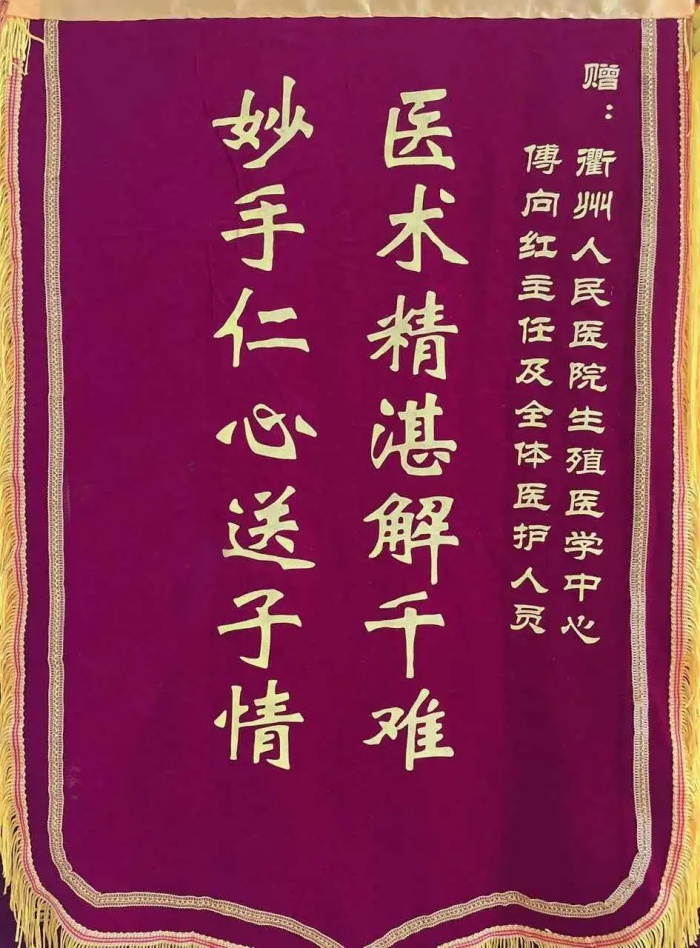 赠：
衢州人民医院生殖医学中心
傅向红主任及全体医护人员
医术精湛解千难
妙手仁心送子情